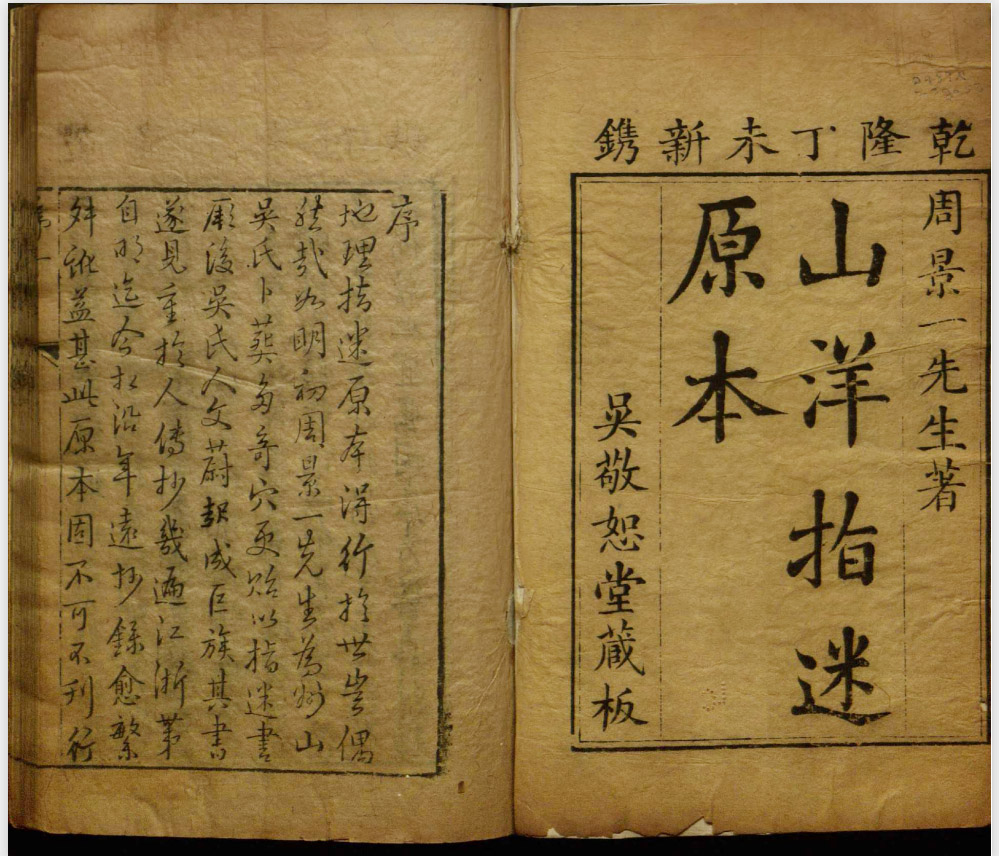 乾隆丁未新鐫
周景一先生著
山洋指迷
原本
吳敬恕堂藏板
序
地理指迷原本得行於世豈偶
然哉如明初周景一先生為州山
吳氏卜葬多奇穴更貽以指迷書
厥後吳氏人文蔚起成巨族其書
遂見重於人傳抄幾遍江浙第
自明迄今相沿年遠抄錄愈繁
舛訛益甚此原本固不可不刊行